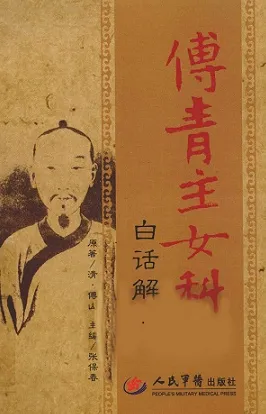 傅青主女科
白话解
原著/清·傅山 主编/张保春
人民军医出版社
PEOPLE'S MILITARY MEDICAL PRESS